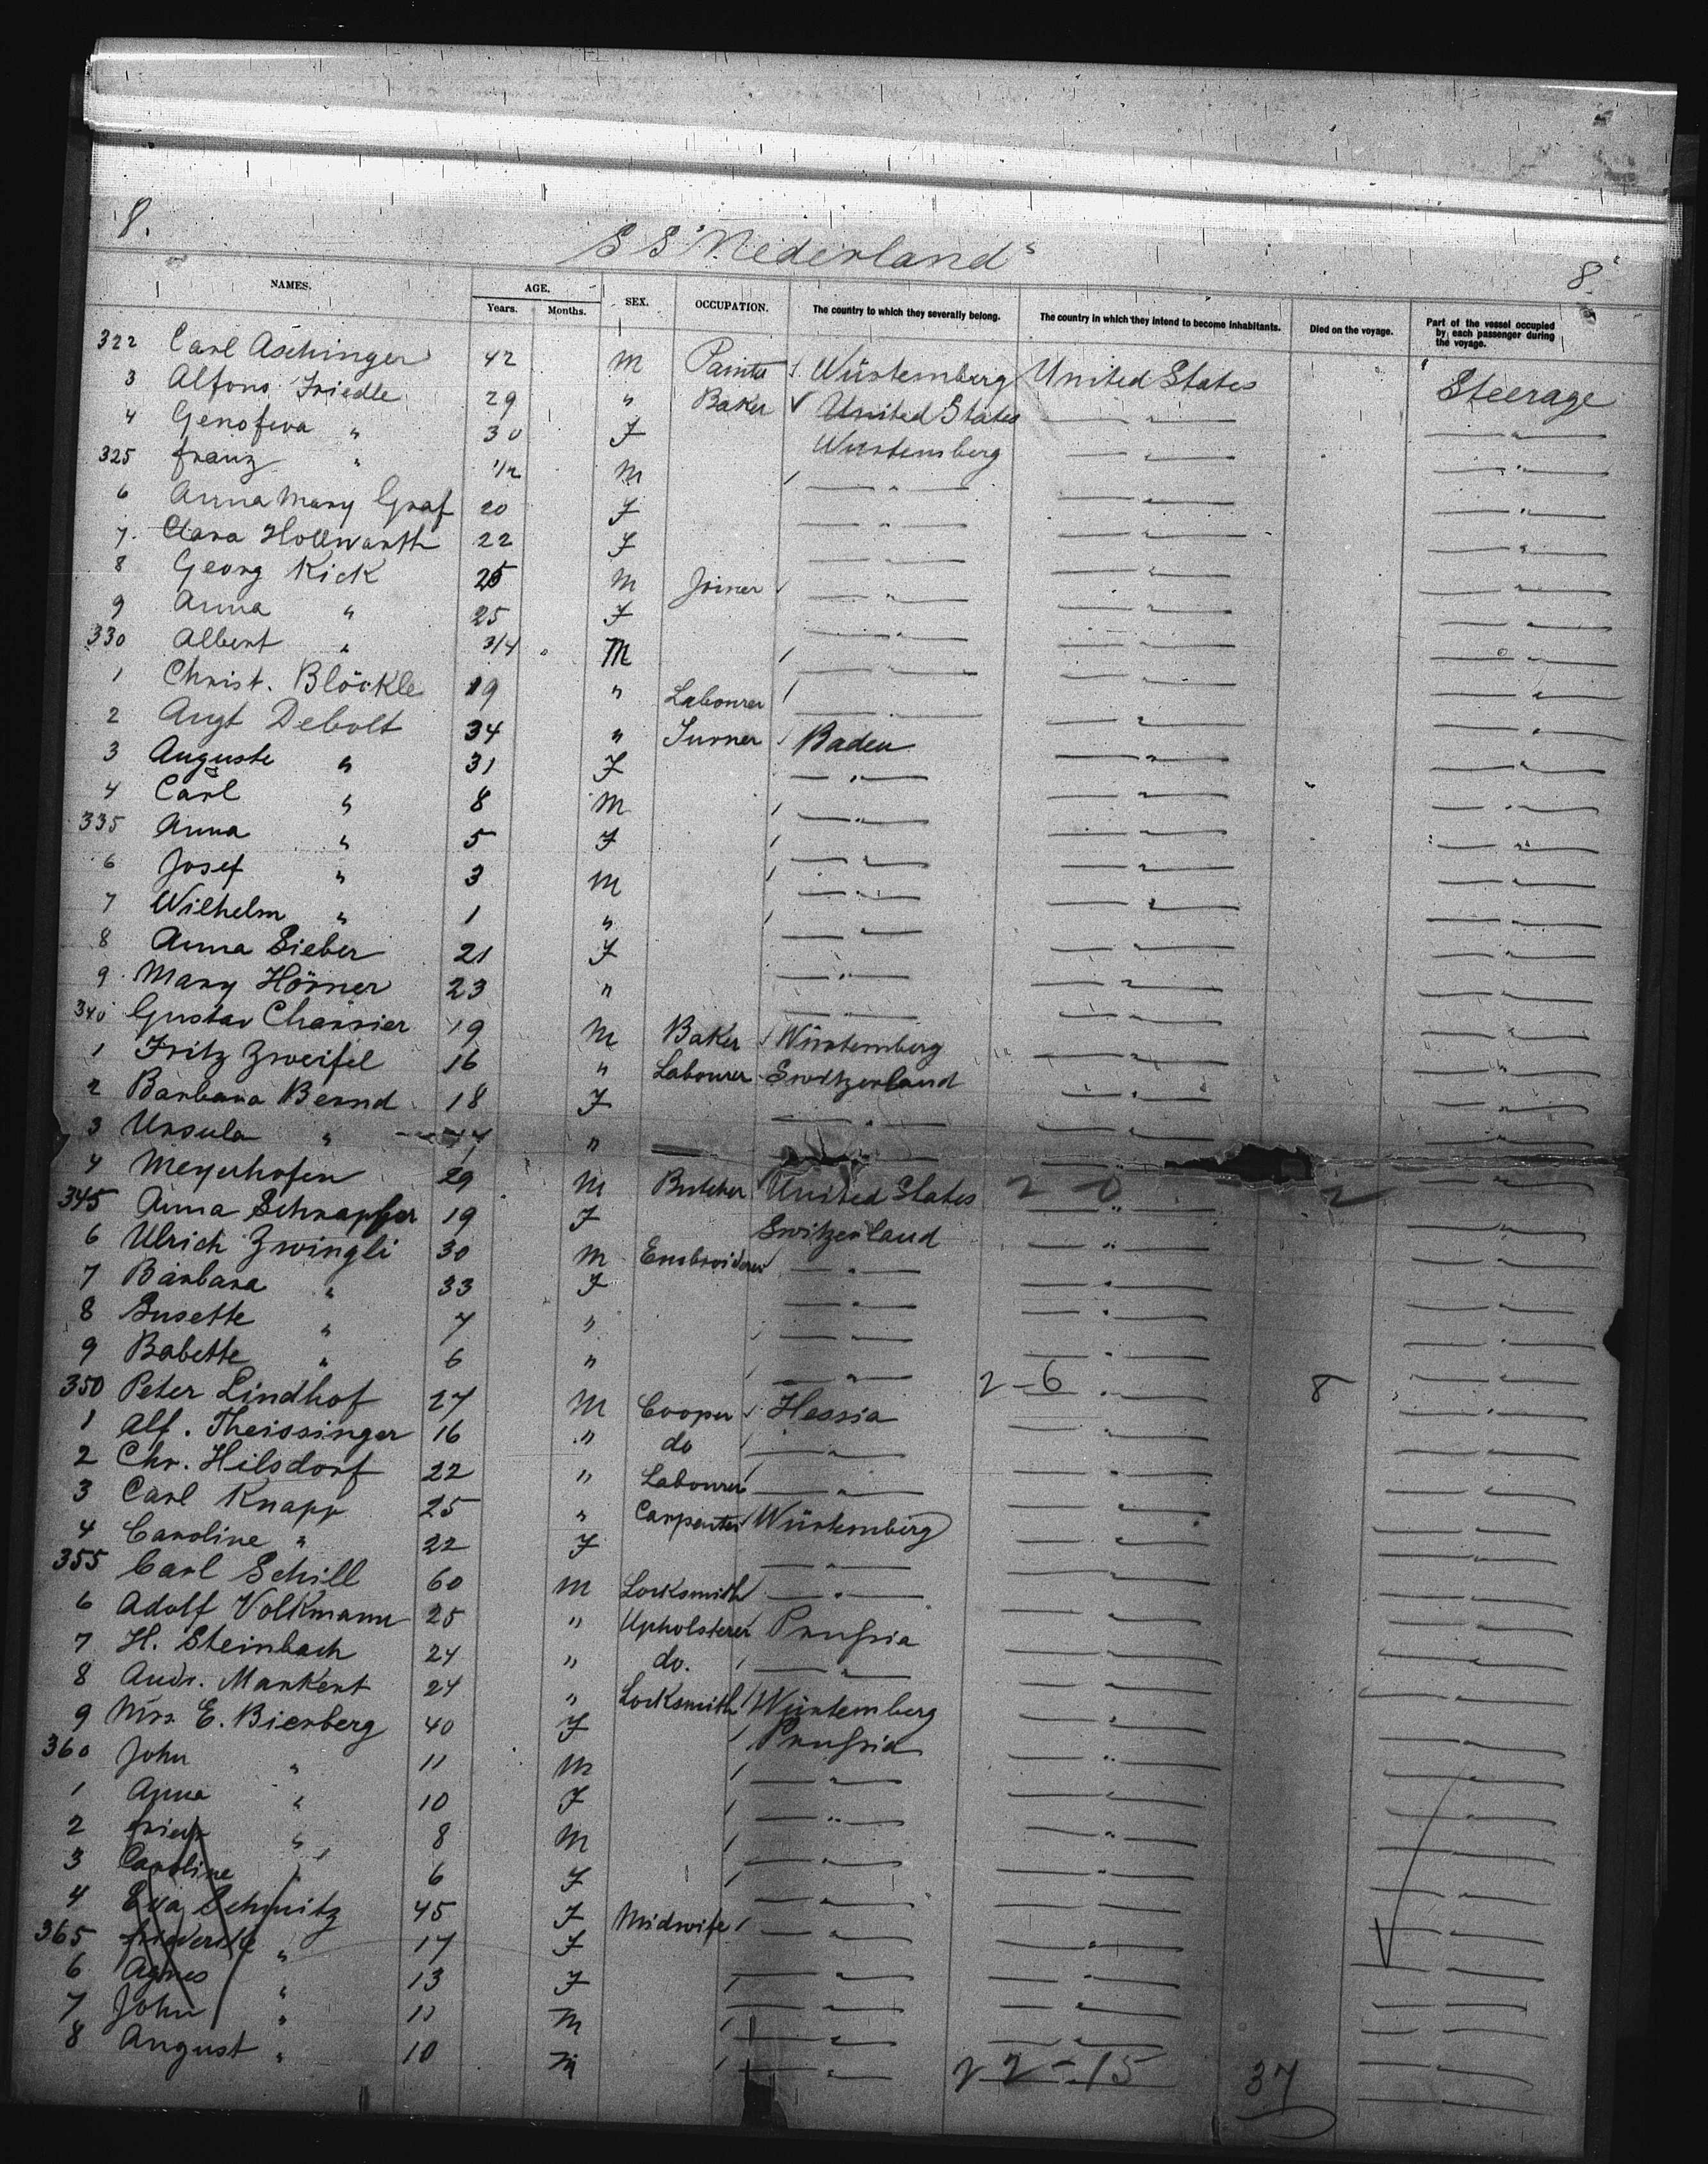 8.
SS "Nederland"
8.
NAMES. AGE. Years. Months. SEX. OCCUPATION. The country to which they severally belong. The country in which they intend to become inhabitants. Died on the voyage. Part of the vessel occupied by each passenger during the voyage.
322 Carl Aschinger 42 M Painter Würtemberg United States Steerage
3 Alfons Friedle 29 " Baker United States — " — — " —
4 Genofeva " 30 F Würtemberg — " — — " —
325 Franz " 1/2 M — " — — " — — " —
6 Anna Mary Graf 20 F — " — — " — — " —
7. Clara Hollwarth 22 F — " — — " — — " —
8 Georg Kick 25 M Joiner — " — — " — — " —
9 Anna " 25 F — " — — " — — " —
330 Albert " 3/4 M — " — — " — — " —
1 Christ. Blöckle 19 " Labourer — " — — " — — " —
2 Augt Debolt 34 " Turner Baden — " — — " —
3 Auguste " 31 F — " — — " — — " —
4 Carl " 8 M — " — — " — — " —
335 Anna " 5 F — " — — " — — " —
6 Josef " 3 M — " — — " — — " —
7 Wilhelm " 1 " — " — — " — — " —
8 Anna Sieber 21 F — " — — " — — " —
9 Mary Hörner 23 " — " — — " — — " —
340 Gustav Charrier 19 M Baker Würtemberg — " — — " —
1 Fritz Zweifel 16 " Labourer Switzerland — " — — " —
2 Barbara Bernd 18 F — " — — " — — " —
3 Ursula " " — " — — " — — " —
4 Meyerhofen 29 M Butcher United States 2 0 — " — 2 — " —
345 Anna Schrapfer 19 F Switzerland — " — — " —
6 Ulrich Zwingli 30 M Embroiderer — " — — " — — " —
7 Barbara " 33 F — " — — " — — " —
8 Susette " 7 " — " — — " — — " —
9 Babette " 6 " — " — — " — — " —
350 Peter Lindhof 27 M Cooper Hessia 2-6 — " — 8 — " —
1 Alf. Theissinger 16 " do — " — — " — — " —
2 Chr. Hilsdorf 22 " Labourer — " — — " — — " —
3 Carl Knapp 25 " Carpenter Würtemberg — " — — " —
4 Caroline " 22 F — " — — " — — " —
355 Carl Schill 60 M Locksmith — " — — " — — " —
6 Adolf Volkmann 25 " Upholsterer Prussia — " — — " —
7 H. Steinbach 24 " do. — " — — " — — " —
8 Andr. Markert 24 " Locksmith Würtemberg — " — — " —
9 Mrs. E. Bierberg 40 F Prussia — " — — " —
360 John " 11 M — " — — " — — " —
1 Anna " 10 F — " — — " — — " —
2 Friedr " 8 M — " — — " — — " —
3 Caroline " 6 F — " — — " — — " —
4 Eva Schmitz 45 F Midwife — " — — " — — " —
365 Friederike " 17 F — " — — " — — " —
6 Agnes " 13 F — " — — " — — " —
7 John " 11 M — " — — " — — " —
8 August " 10 M — " — — " — — " —
22-15 37